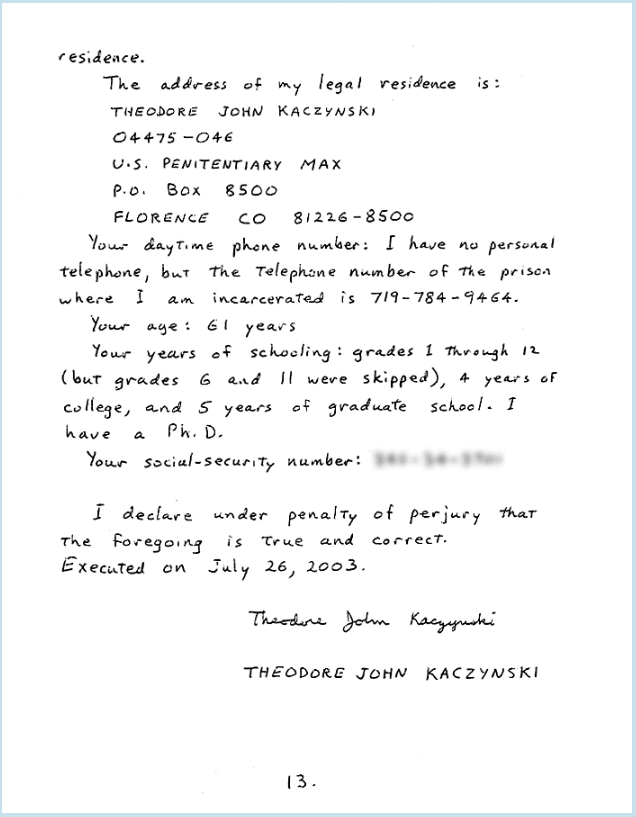 residence.
The address of my legal residence is:
THEODORE JOHN KACZYNSKI
04475-046
U.S. PENITENTIARY MAX
P.O. BOX 8500
FLORENCE CO 81226-8500
Your daytime phone number: I have no personal
telephone, but the telephone number of the prison
where I am incarcerated is 719-784-9464.
Your age: 61 years
Your years of schooling: grades 1 through 12
(but grades 6 and 11 were skipped), 4 years of
college, and 5 years of graduate school. I
have a Ph.D.
Your social-security number:
I declare under penalty of perjury that
the foregoing is true and correct.
Executed on July 26, 2003.
Theodore John Kaczynski
THEODORE JOHN KACZYNSKI
13.